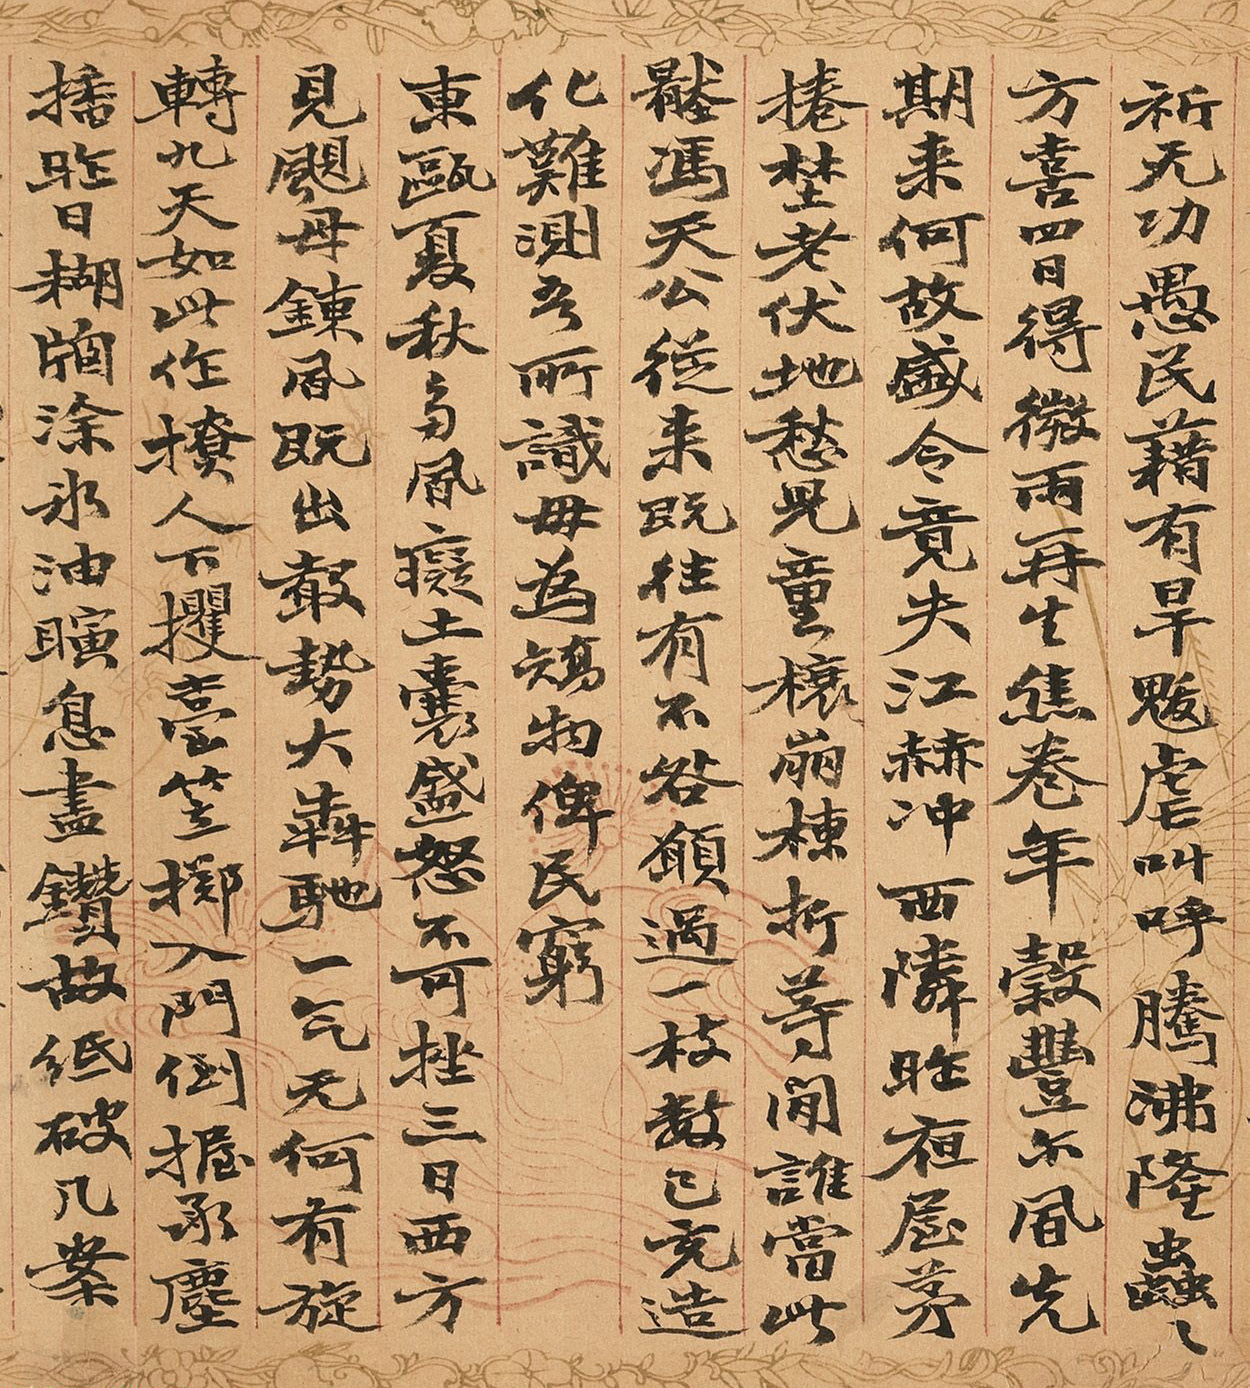 祈无功愚民藉有旱魃虐叫呼騰沸隆蟲〻
方喜四日得微雨再生焦卷年穀豐尓風先
期来何故盛令竟失江赫冲西隣昨夜屋茅
捲埜老伏地愁兒童榱崩棟折等閒誰當此
馮天公従来既往有不咎願過一枝数已充造
化難測吾所識毋為鴆物俾民窮
東甌夏秋多風癡土囊盛怒不可挫三日西方
見颶母鍊風既出毅勢大犇馳一气无何有旋
轉九天如此作撩人下攫臺笠擲入門倒握承塵
播昨日糊牖涂氷油瞚息盡鑽故紙破几案